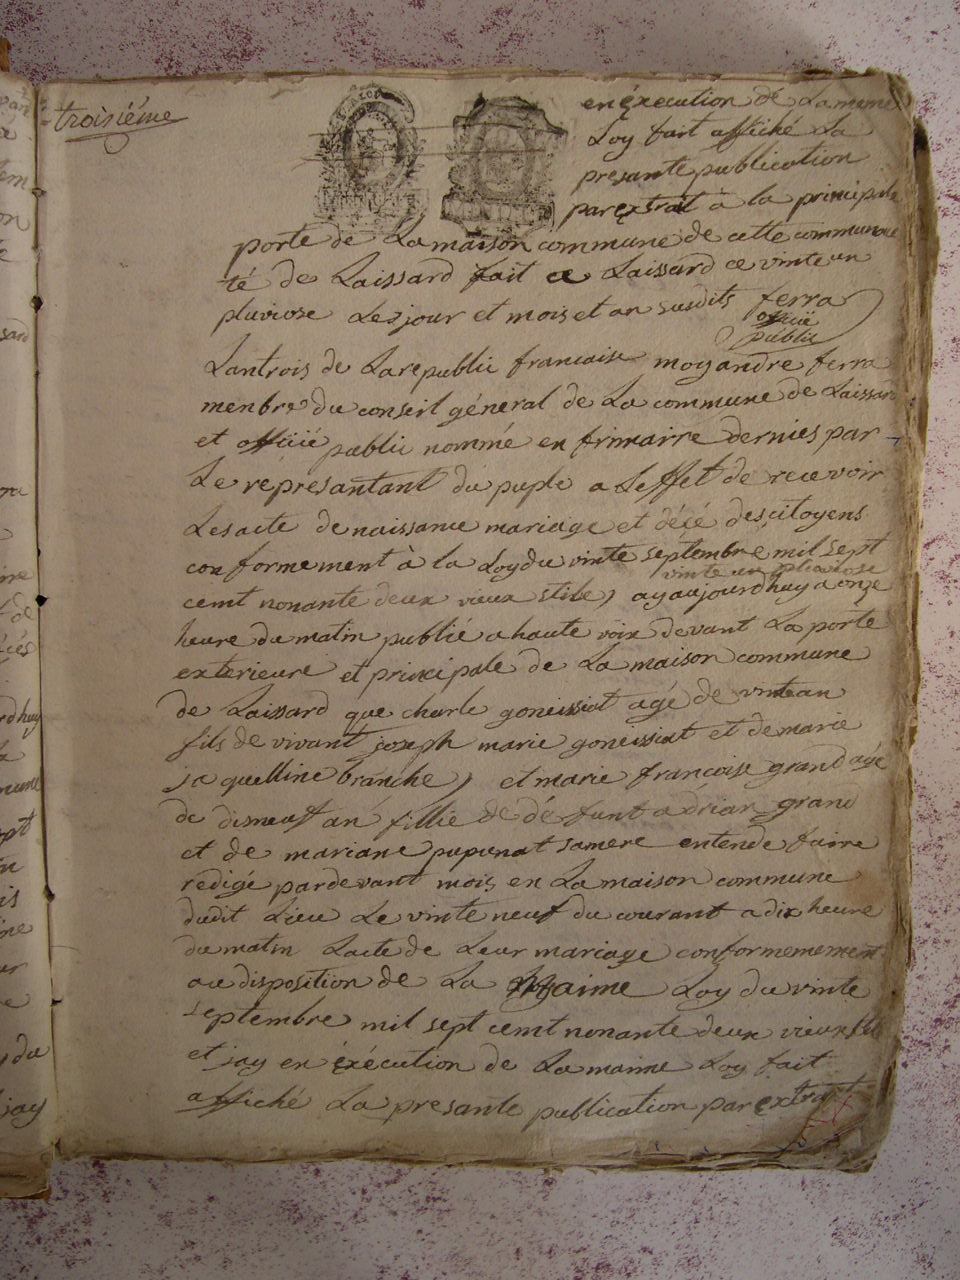 troisiéme
en éxecution de La meme
Loy fait affiché La
presante publication
par extrait à la principale
porte de La maison commune de cette communau
té de Laissard fait a Laissard ce vinte un
pluviose Les jour et mois et an susdits ferra
officié
public
Lantrois de La republic francaise moy andre ferra
menbre du conseil géneral de La commune de Laissard
et officié public nommé en frimairre dernies par
Le réprésantant du puple a Leffet de recevoir
Les acte de naissance mariage et décé des citoyens
conformement à la Loy du vinte septembre mil sept
vinte un pluviose
cemt nonante deux vieux stile, ay aujourdhuy a onze
heure du matin publié a haute voix devant La porte
exterieure et principale de La maison commune
de Laissard que charle goneissiat agé de vinte an
fils de vivant joseph marie goneissiat et de marie
jaquelline branche, et marie francoise grand agé
de disneuf an fillie de défunt adrian grand
et de mariane pupunat sa mere entende faire
redigé pardevant mois en La maison commune
dudit Lieu Le vinte neuf du courant a dix heure
du matin Lacte de Leur mariage conformemement
au disposition de La maime Loy du vinte
septembre mil sept cemt nonante deux vieux stile
et jay en éxécution de La maime Loy fait
affiché La presante publication par extrait